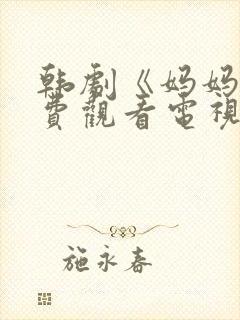 韩剧《妈妈
费觀看電視
施永春